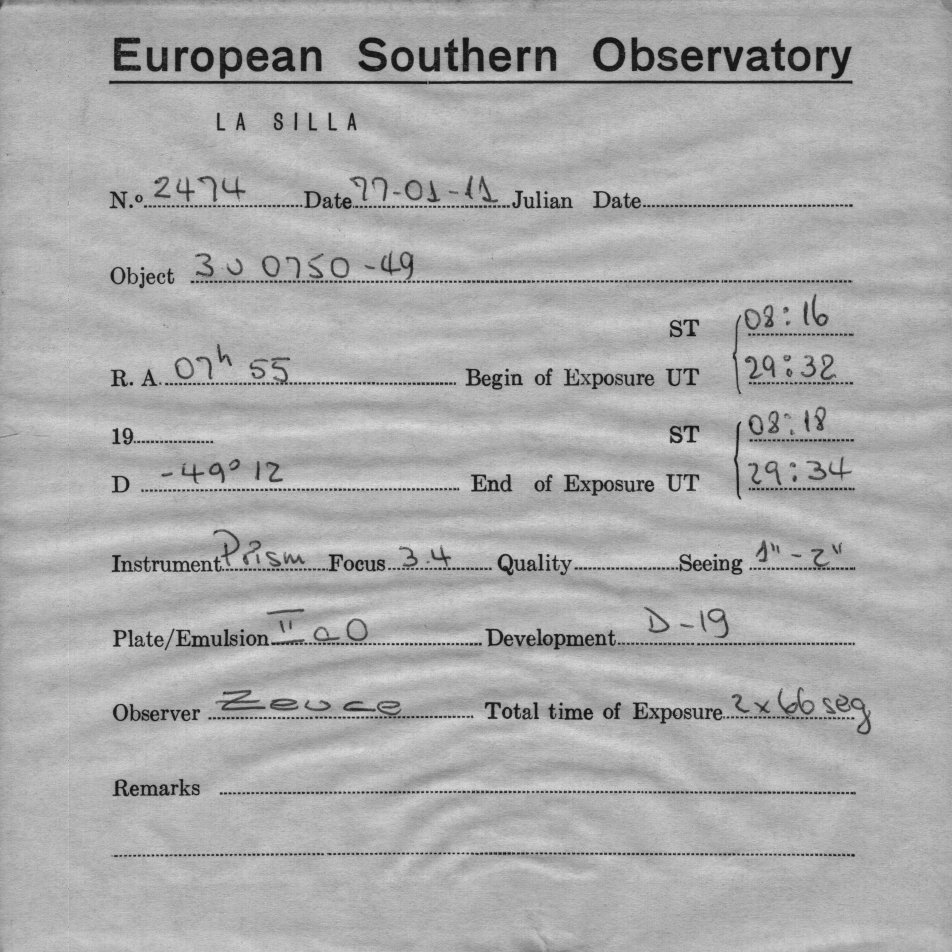 European Southern Observatory
LA SILLA
N.º 2474 Date 77-01-11 Julian Date
Object 3U 0750-49
ST 08:16
R. A. 07h 55 Begin of Exposure UT 29:32
19 ST 08:18
D -49° 12 End of Exposure UT 29:34
Instrument Prism Focus 3.4 Quality Seeing 1" - 2"
Plate/Emulsion II a O Development D-19
Observer Total time of Exposure 2x66 seg
Remarks